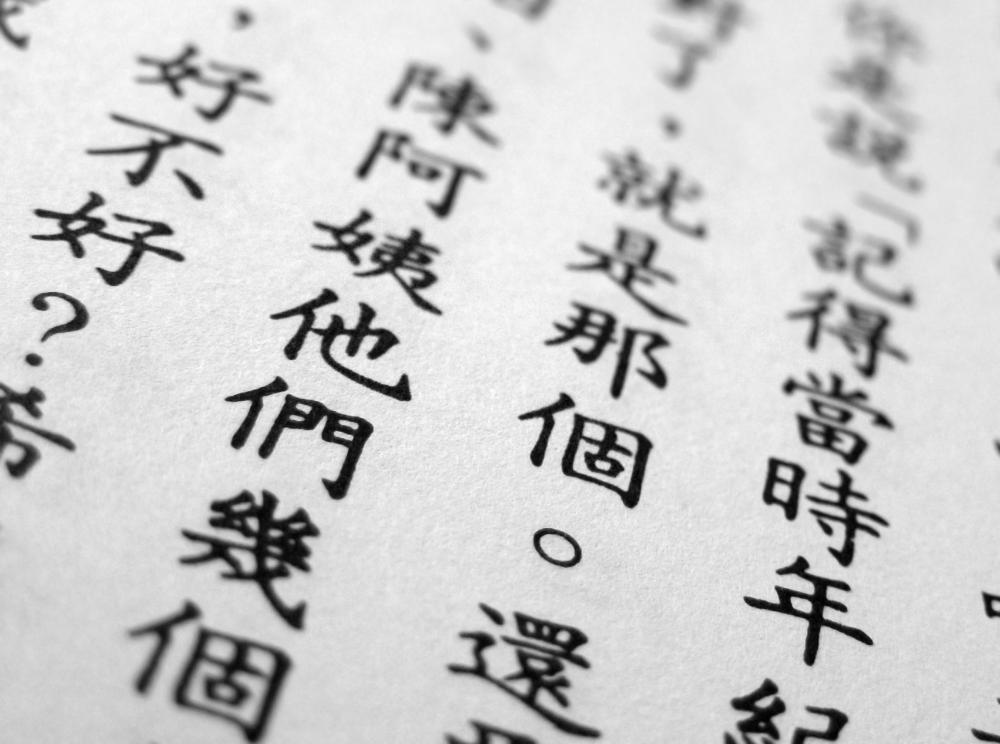 你是說「記得當時年紀
了，就是那個。還
、陳阿姨他們幾個
，好不好？希